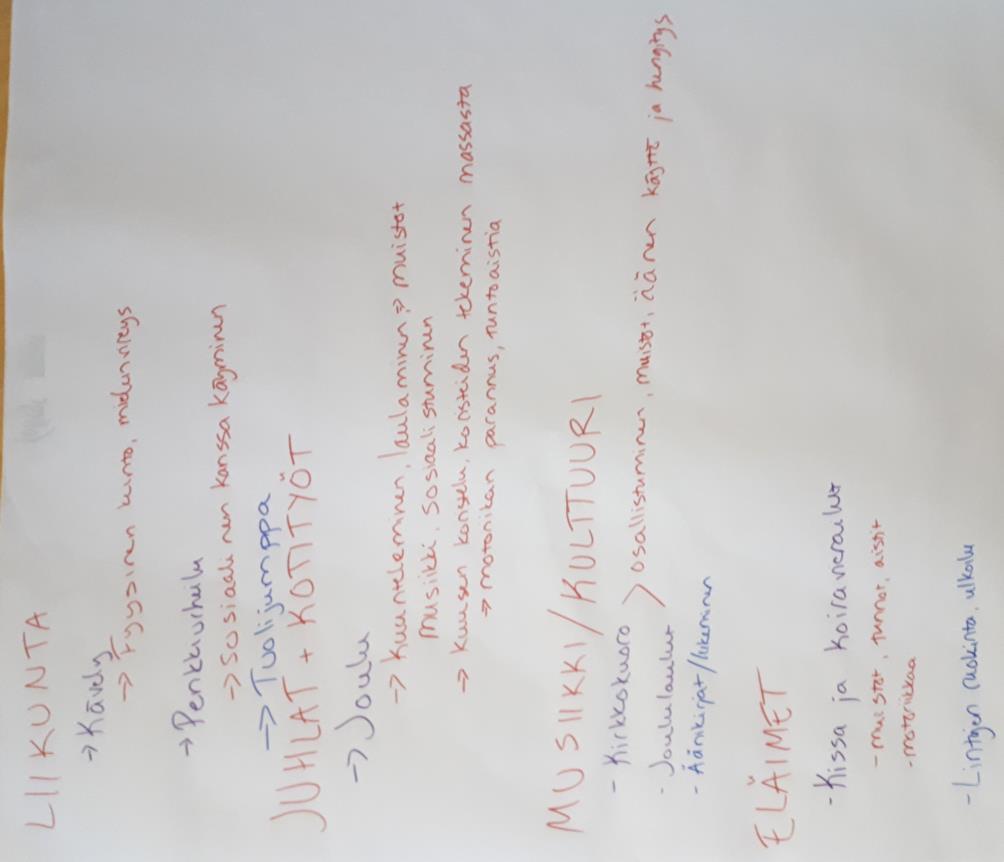 LIIKUNTA
→ Kävely
→ Fyysinen kunto, mielenvireys
→ Penkkiurheilu
→ Sosiaalinen kanssa käyminen
→ Tuolijumppa
JUHLAT + KOTITYÖT
→ Joulu
→ Kuunteleminen, laulaminen → muistot
musiikki, sosiaalistuminen
→ Kuusen koristelu, koristeiden tekeminen massasta
→ motoriikan parannus, tuntoaistia
MUSIIKKI / KULTTUURI
- Kirkkokuoro
- Joululaulut > osallistuminen, muistot, äänen käyttö ja hengitys
- Äänikirjat/lukeminen
ELÄIMET
- Kissa ja koiravierailut
- muistot, tunnot, aistit
- motoriikkaa
- Lintujen ruokinta, ulkoilu